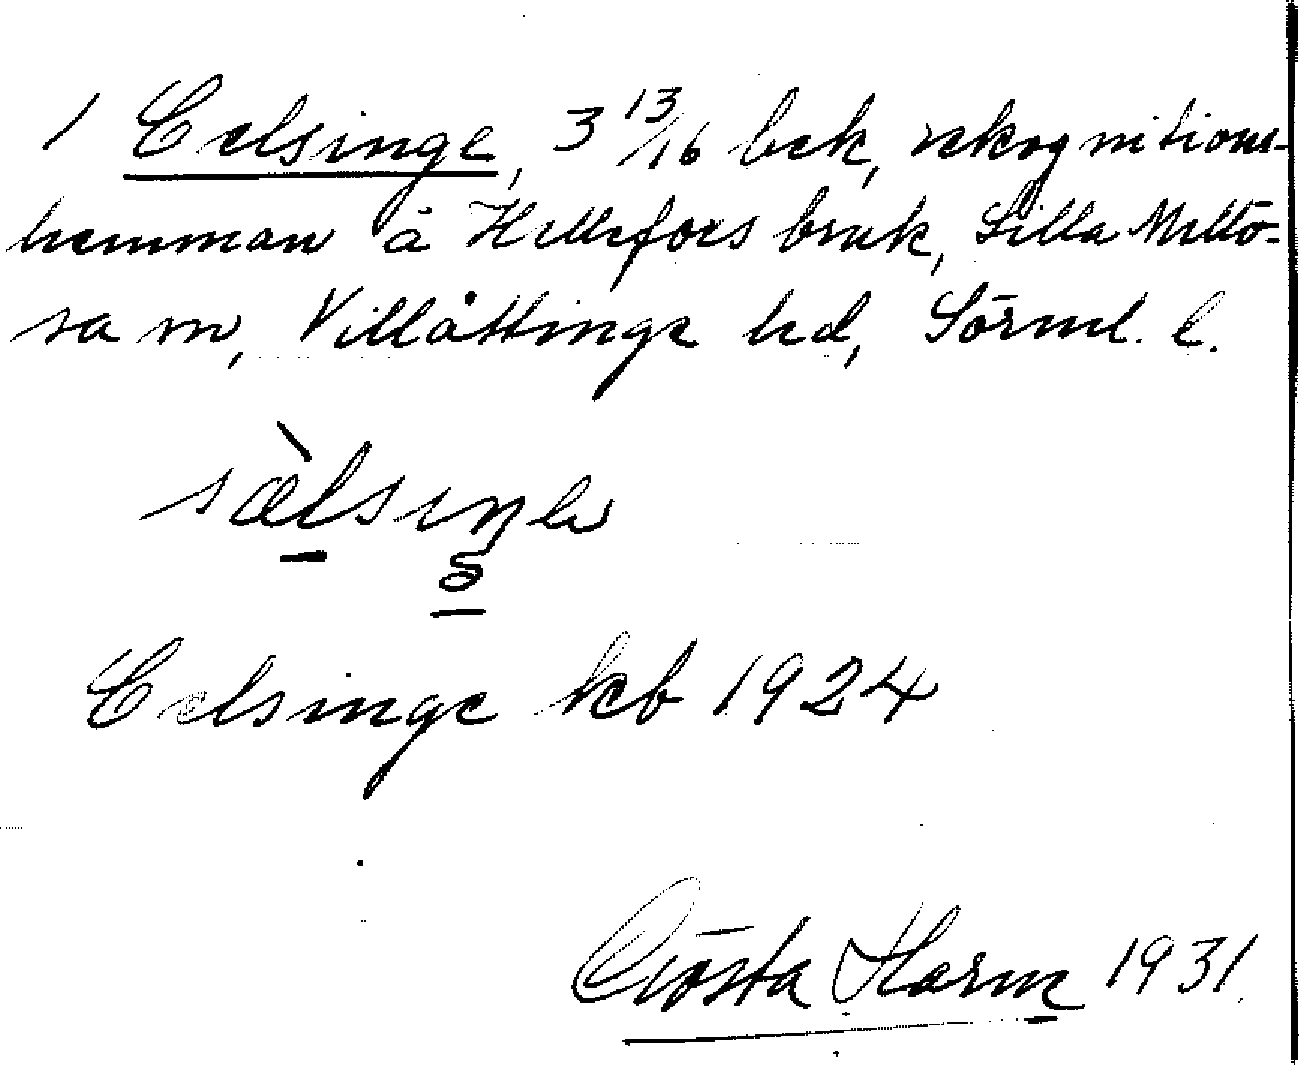 1 Celsinge, 3 13/16 bek, rekognitions-
hemman å Hellefors bruk, Lilla Mellö-
sa sn, Villåttinge hd, Sörml. l.
sælsiŋe
Celsinge kb 1924
Gösta
1931.